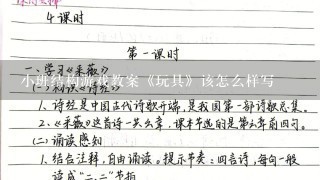 4课时
第一课时
一、学习《采薇》
小班结构游戏教案《玩具》该怎么样写
(一)初识《诗经》
1、诗经是中国古代诗歌开端,是我国第一部诗歌总集。
2、《采薇》这首诗一共六章,课本节选的是第六章前四句。
(二)诵读感知
1、结合注释,自由诵读。提示节奏:四言诗,每句一般
读成“二、二”节拍